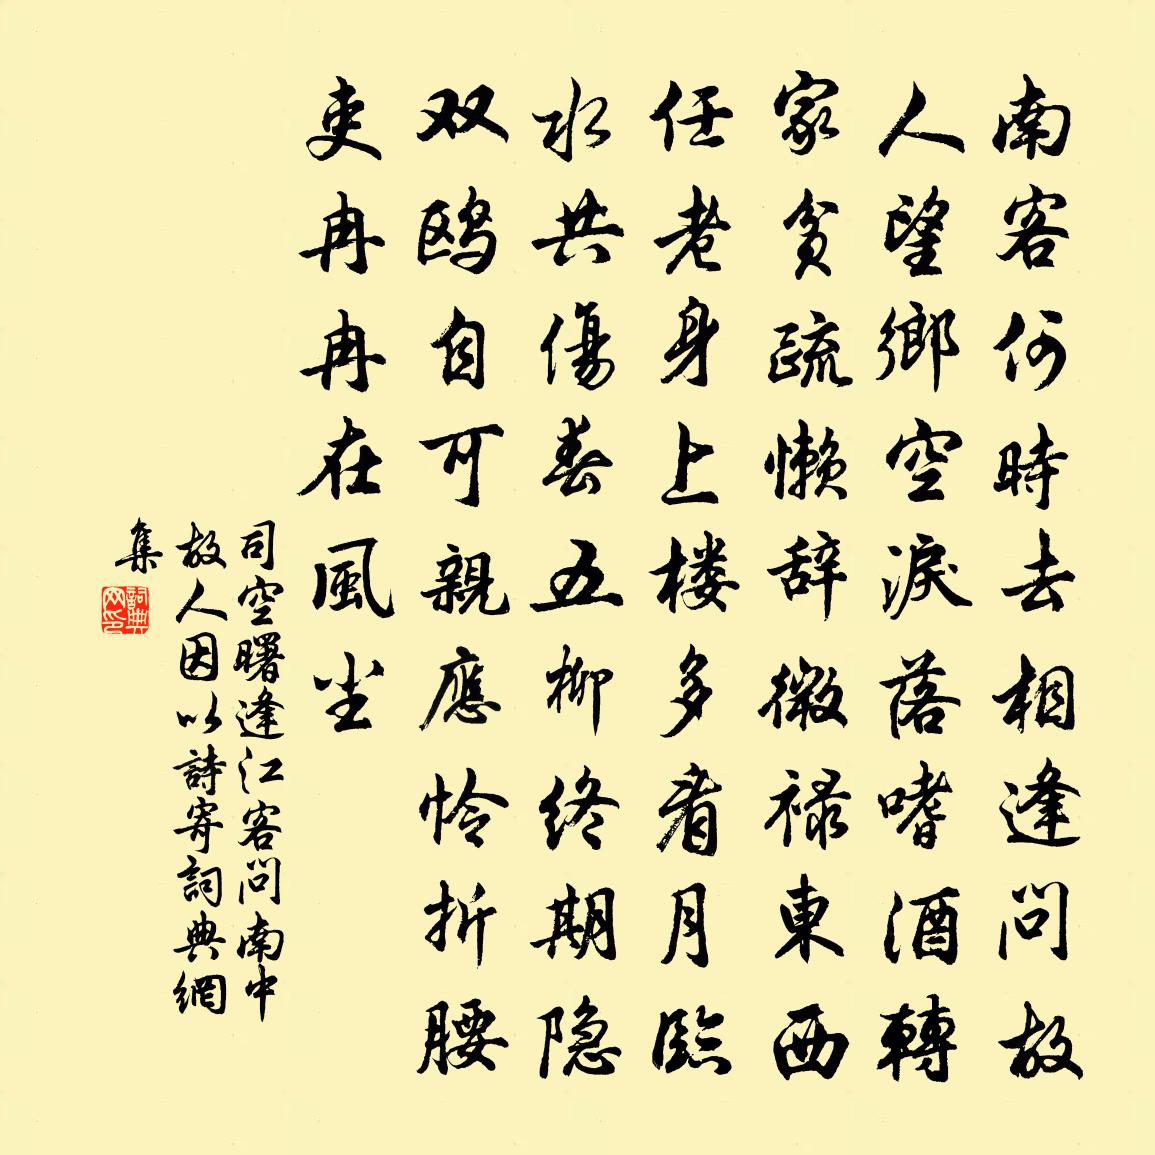 南客何時去相逢問故
人望鄉空淚落嗜酒轉
家貧疏懶辞微禄東西
任老身上楼多看月臨
水共傷春五柳终期隐
双鸥自可親應怜折腰
吏冉冉在風尘
司空曙逢江客問南中
故人因以詩寄詞典網
集
詞典網印